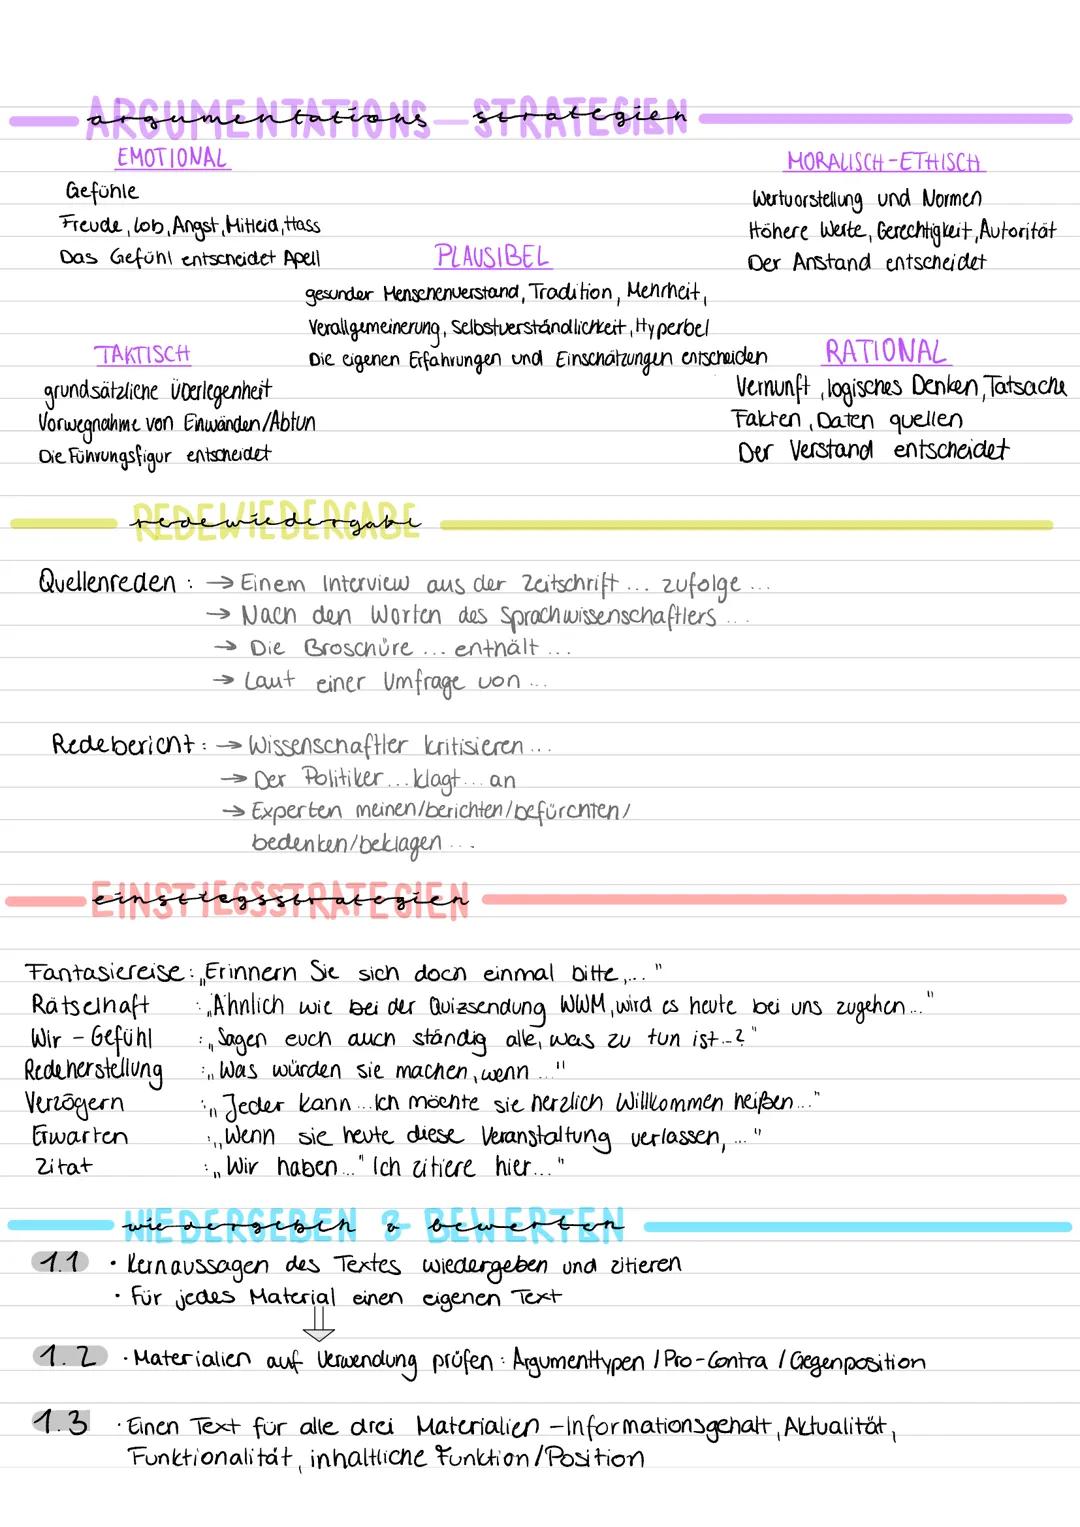 ARGUMENTATIONS-STRATEGIEN
argumentations-strategien
EMOTIONAL
Gefühle
Freude, Lob, Angst, Mitleid, Hass
Das Gefühl entscheidet Apell
MORALISCH-ETHISCH
Wertvorstellung und Normen
Höhere Werte, Gerechtigkeit, Autorität
Der Anstand entscheidet
PLAUSIBEL
gesunder Menschenverstand, Tradition, Mehrheit,
Verallgemeinerung, Selbstverständlichkeit, Hyperbel
Die eigenen Erfahrungen und Einschätzungen entscheiden
TAKTISCH
grundsätzliche Überlegenheit
Vorwegnahme von Einwänden/Abtun
Die Führungsfigur entscheidet
RATIONAL
Vernunft, logisches Denken, Tatsache
Fakten, Daten quellen
Der Verstand entscheidet
REDEWIEDERGABE
redewiedergabe
Quellenreden: → Einem Interview aus der Zeitschrift ... zufolge ...
→ Nach den Worten des Sprachwissenschaftlers ...
→ Die Broschüre ... enthält ...
→ Laut einer Umfrage von ...
Redebericht: → Wissenschaftler kritisieren ...
→ Der Politiker ... klagt ... an
→ Experten meinen/berichten/befürchten/
bedenken/beklagen ...
EINSTIEGSSTRATEGIEN
einstiegsstrategien
Fantasiereise: „Erinnern Sie sich doch einmal bitte,..."
Rätselhaft : „Ähnlich wie bei der Quizsendung WWM, wird es heute bei uns zugehen..."
Wir - Gefühl : „Sagen euch auch ständig alle, was zu tun ist...?"
Redeherstellung : „Was würden sie machen, wenn ..."
Verzögern : „Jeder kann ... Ich möchte sie herzlich Willkommen heißen..."
Erwarten : „Wenn sie heute diese Veranstaltung verlassen, ..."
Zitat : „Wir haben..." Ich zitiere hier..."
WIEDERGEBEN & BEWERTEN
wiedergeben & bewerten
1.1 · Kernaussagen des Textes wiedergeben und zitieren
· Für jedes Material einen eigenen Text
1.2 · Materialien auf Verwendung prüfen: Argumenttypen / Pro-Contra / Gegenposition
1.3 · Einen Text für alle drei Materialien - Informationsgehalt, Aktualität,
Funktionalität, inhaltliche Funktion/Position